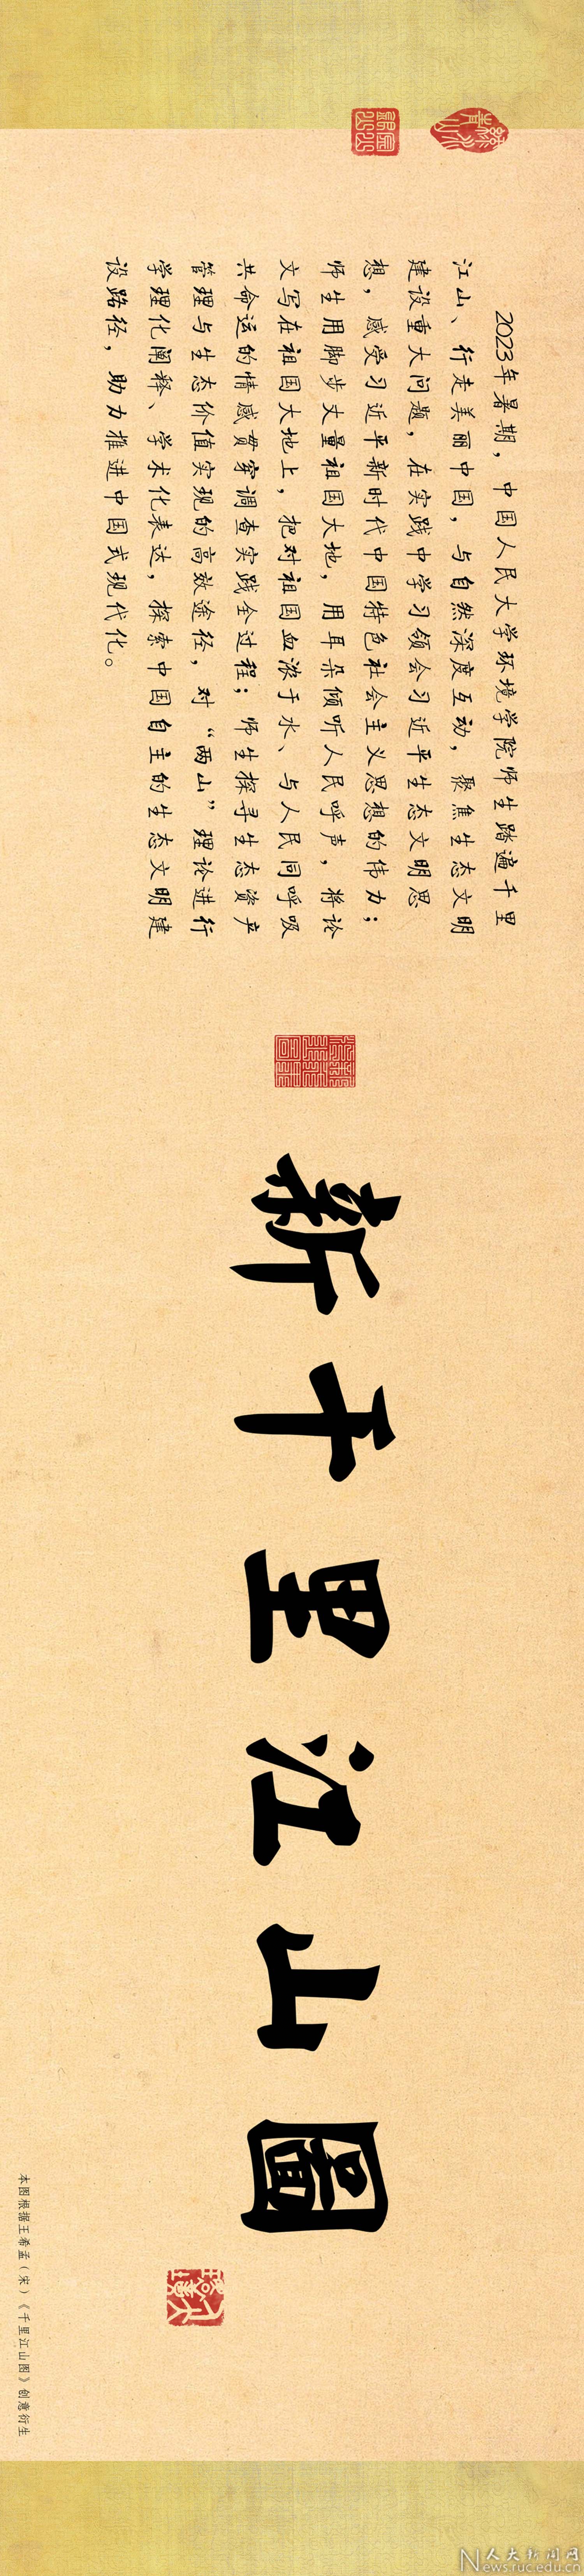 2023年暑期，中国人民大学环境学院师生踏遍千里
江山、行走美丽中国，与自然深度互动，聚焦生态文明
建设重大问题，在实践中学习领会习近平生态文明思
想，感受习近平新时代中国特色社会主义思想的伟力；
师生用脚步丈量祖国大地，用耳朵倾听人民呼声，将论
文写在祖国大地上，把对祖国血浓于水、与人民同呼吸
共命运的情感贯穿调查实践全过程；师生探寻生态资产
管理与生态价值实现的高效途径，对“两山”理论进行
学理化阐释、学术化表达，探索中国自主的生态文明建
设路径，助力推进中国式现代化。
新千里江山圖
本图根据王希孟（宋）《千里江山图》创意衍生
人大新闻网
News.ruc.edu.cn